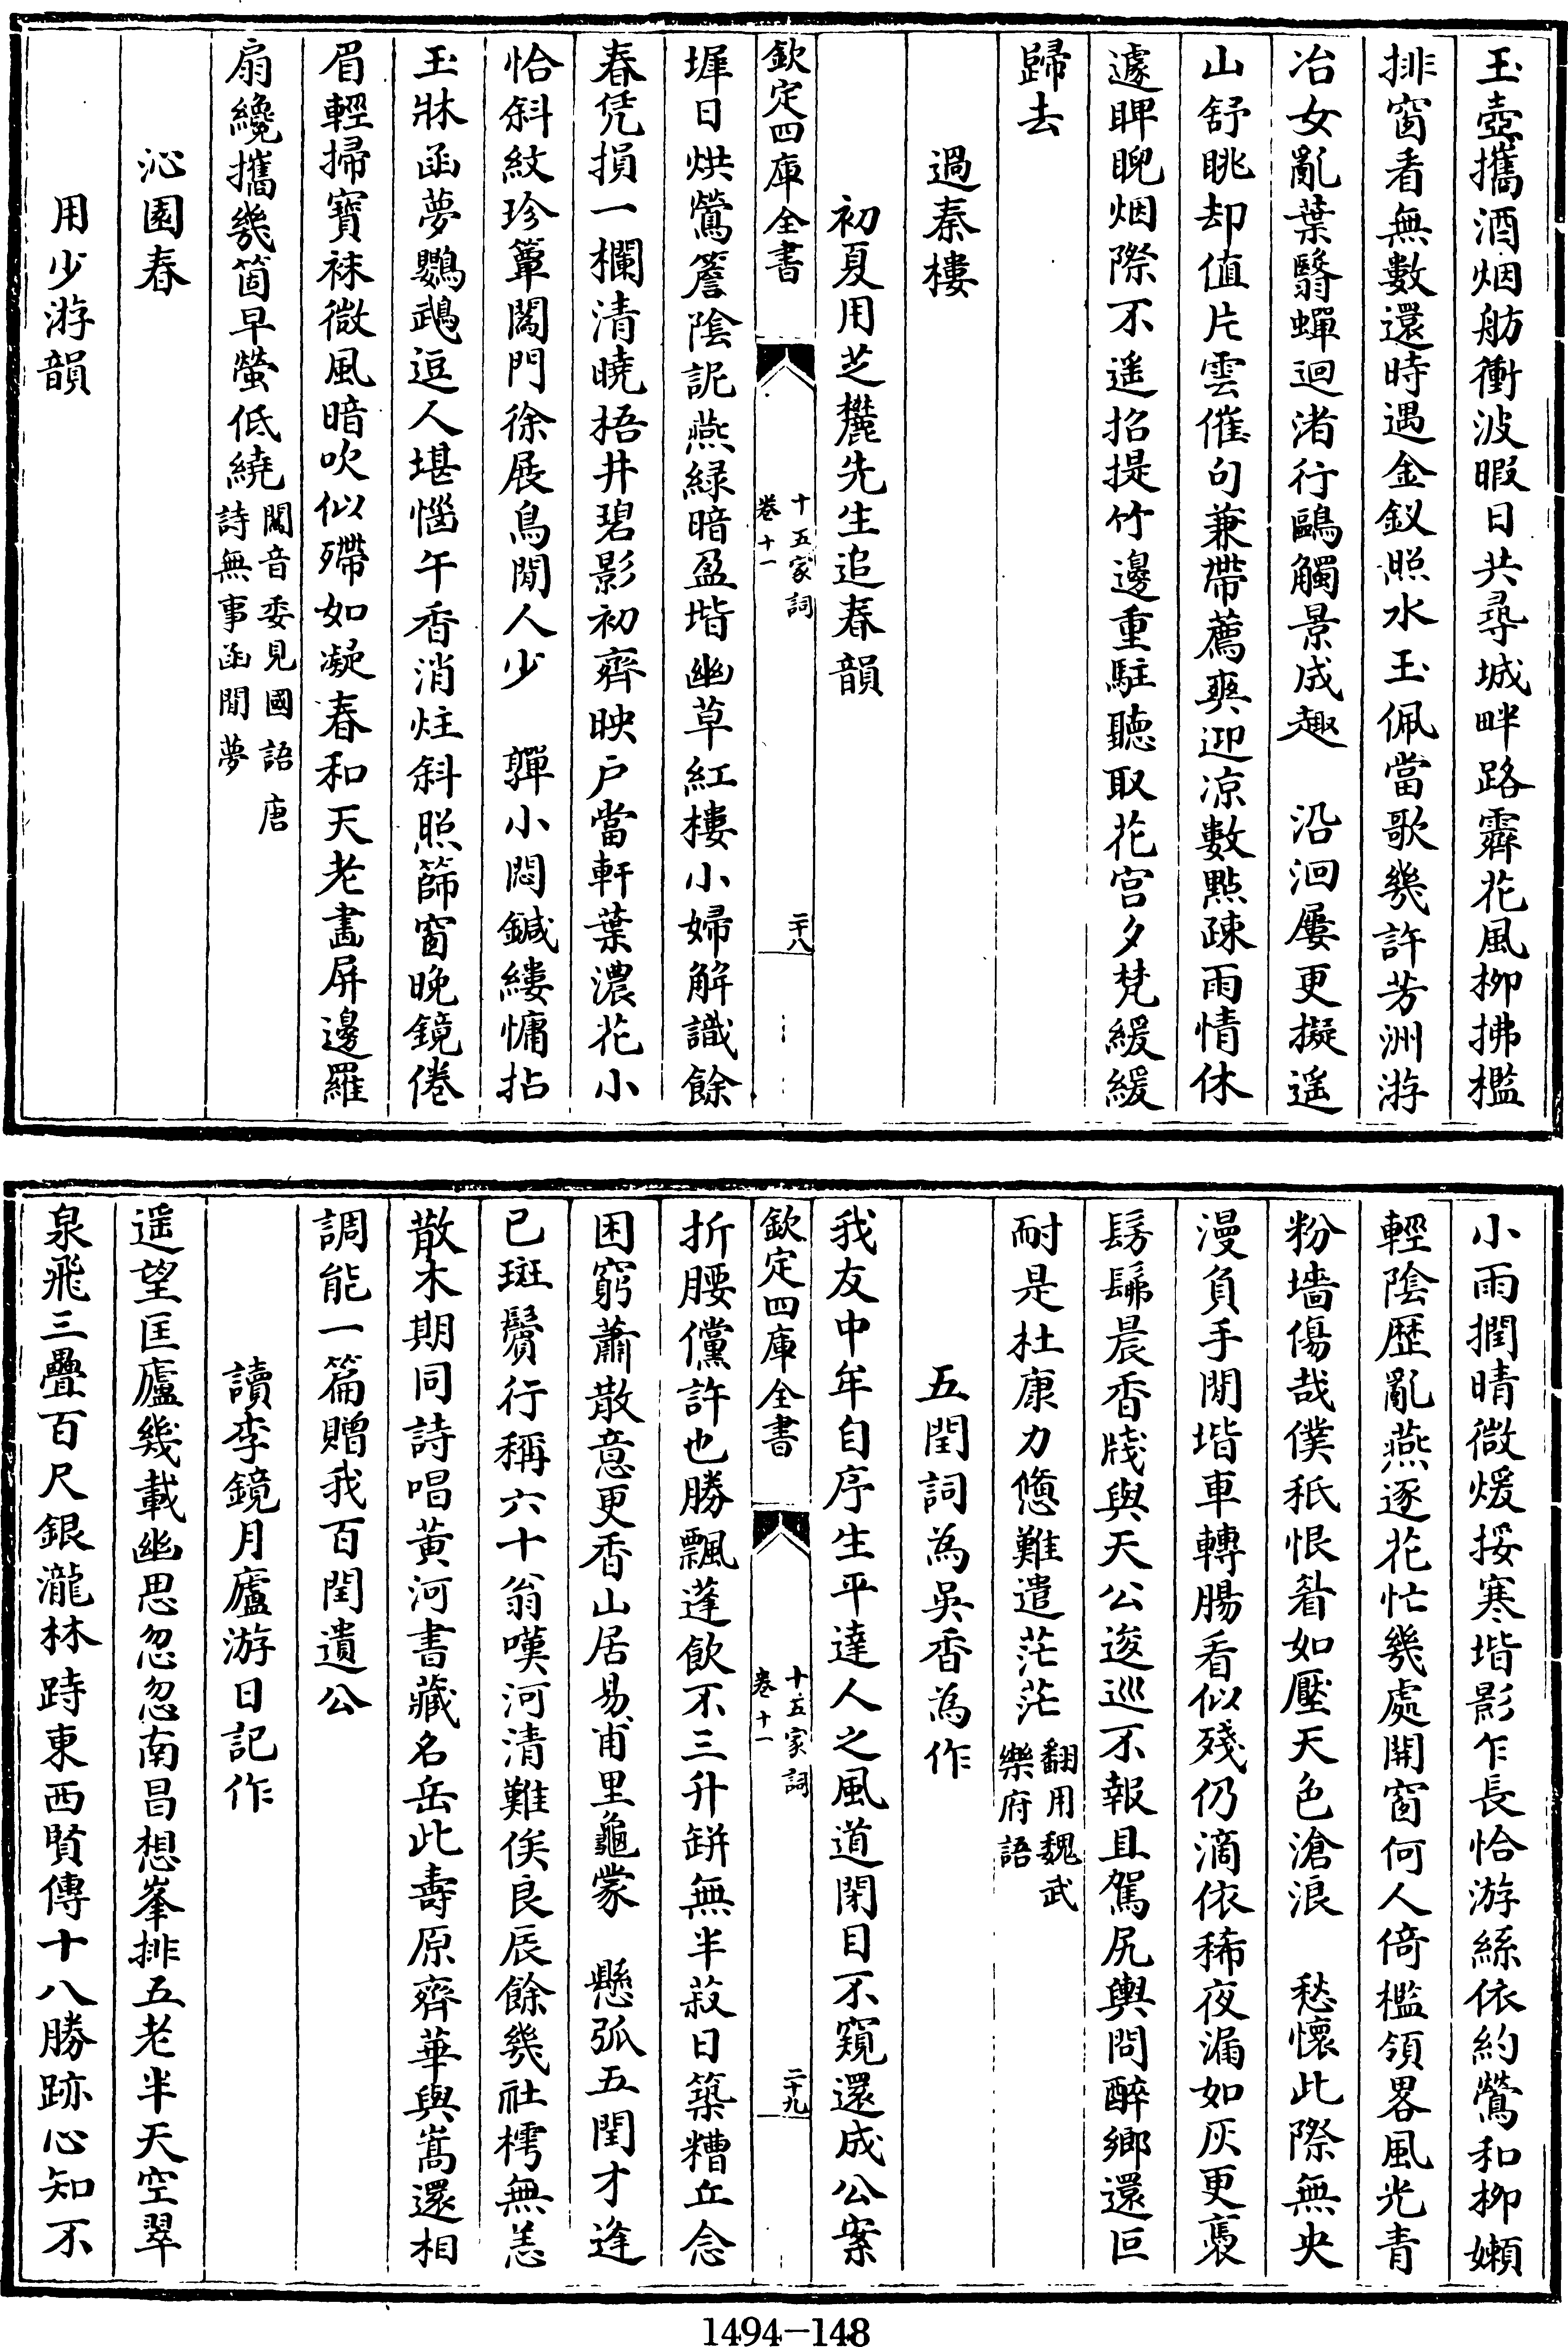 玉壺攜酒烟舫衝波暇日共尋城畔路霽花風柳拂檻
排窗看無數還時遇金釵照水玉佩當歌幾許芳洲游
冶女亂葉翳蟬迴渚行鷗觸景成趣　沿洄屢更擬遥
山舒眺却值片雲催句兼帶薦爽迎凉數點疎雨情休
遽睥睨烟際不遥招提竹邊重駐聽取花宫夕梵緩緩
歸去
過秦樓
初夏用芝麓先生追春韻
欽定四庫全書
十五家詞
卷十一
二十八
墀日烘鶯簷陰詑燕緑暗盈堦幽草紅樓小婦解識餘
春凭損一欄清曉梧井碧影初齊映户當軒葉濃花小
恰斜紋珍簟闔門徐展鳥閒人少　嚲小悶鍼縷慵拈
玉牀函夢鸚鵡逗人堪惱午香消炷斜照篩窗晚鏡倦
眉輕掃寳袜微風暗吹似殢如凝春和天老畫屏邊羅
扇纔攜幾箇早螢低繞
闔音委見國語唐
詩無事函閒夢
沁園春
用少游韻
小雨撋晴微煖挼寒堦影乍長恰游絲依約鶯和柳嬾
輕陰歴亂燕逐花忙幾處開窗何人倚檻領畧風光青
粉墻傷哉僕秖恨眘如壓天色滄浪　愁懷此際無央
漫負手閒堦車轉腸看似殘仍滴依稀夜漏如灰更裛
髣髴晨香牋與天公逡巡不報且駕尻輿問醉鄉還叵
耐是杜康力憊難遣茫茫
翻用魏武
樂府語
五閏詞為吳香為作
我友中年自序生平達人之風道閉目不窺還成公案
欽定四庫全書
十五家詞
卷十一
二十九
折腰儻許也勝飄蓬飲不三升缾無半菽日築糟丘念
困窮蕭散意更香山居易甫里龜蒙　懸弧五閏才逢
已斑鬢行稱六十翁嘆河清難俟良辰餘幾社樗無恙
散木期同詩唱黄河書藏名岳此壽原齊華與嵩還相
調能一篇贈我百閏遺公
讀李鏡月廬游日記作
遥望匡廬幾載幽思忽忽南昌想峯排五老半天空翠
泉飛三疊百尺銀瀧林跱東西賢傳十八勝跡心知不
1494-148